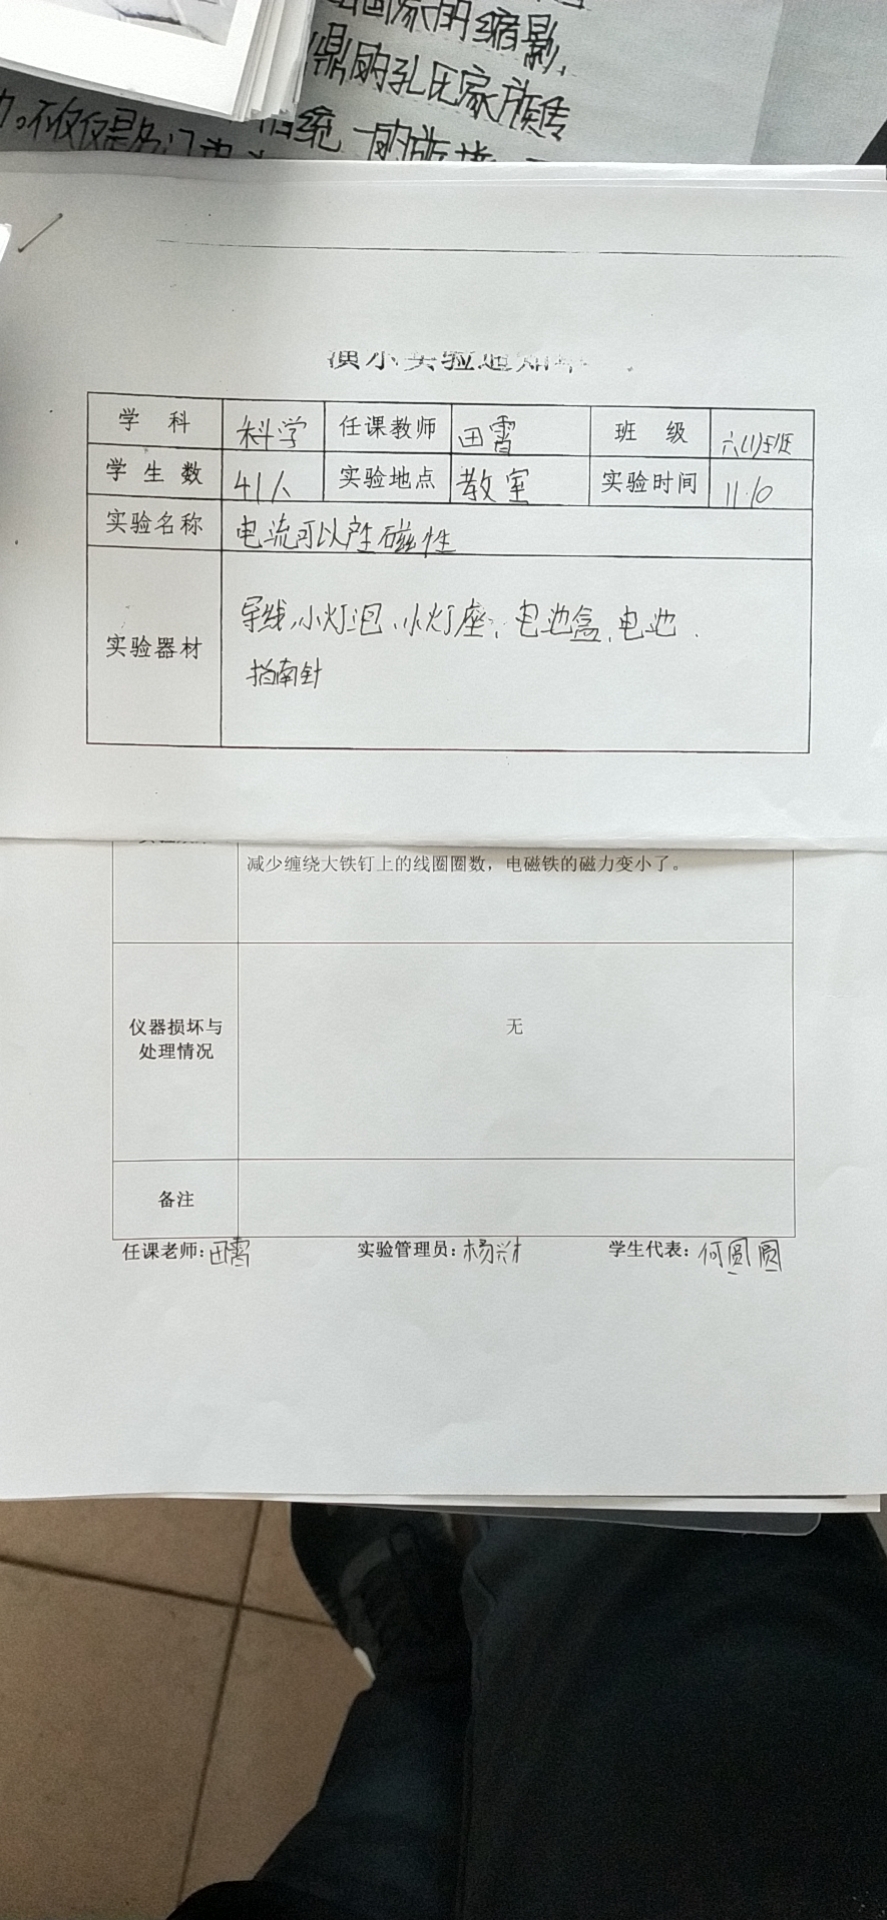 的缩影,
鼎的孔氏家族传
。不仅仅是名门
统一的
演示实验通知单
学 科 科学 任课教师 田雷 班 级 六(1)班
学 生 数 41人 实验地点 教室 实验时间 11.10
实验名称 电流可以产生磁性
实验器材
导线、小灯泡、小灯座、电池盒、电池、
指南针
减少缠绕大铁钉上的线圈圈数，电磁铁的磁力变小了。
仪器损坏与
处理情况
无
备注
任课老师:田雷 实验管理员:杨兴才 学生代表:何圆圆